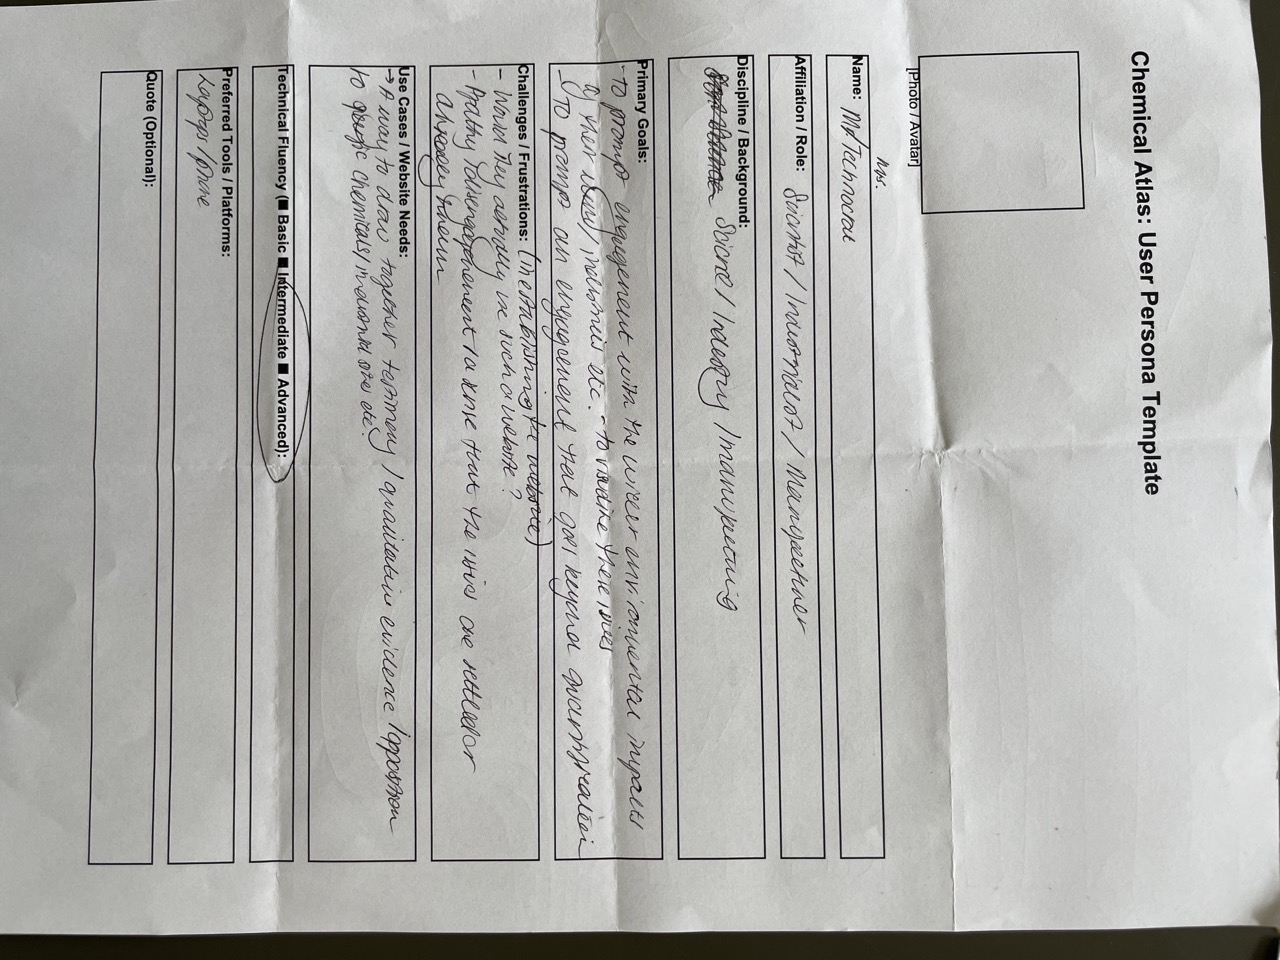 Chemical Atlas: User Persona Template
[Photo / Avatar]
Mrs.
Name: Mr/Technocrat
Affiliation / Role: Scientist / Industrialist / Manufacturer
Discipline / Background:
Science / Industry / manufacturing
Primary Goals:
- To prompt engagement with the wider environmental impacts
of their industries etc. - to visualise these issues
- To prompt an engagement that goes beyond quantification
Challenges / Frustrations: (in establishing the website)
- Would they actually use such a website?
- Apathy / disengagement / a sense that the issues are settled or
already known
Use Cases / Website Needs:
→ A way to draw together testimony / qualitative evidence / opposition
to specific chemicals / industrial sites etc.
Technical Fluency (■ Basic ■ Intermediate ■ Advanced):
Preferred Tools / Platforms:
Laptops / phone
Quote (Optional):